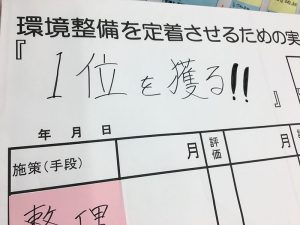 環境整備を定着させるための実
『1位を獲る!!』
年 月 日
施策(手段) 月 評価 月
整理